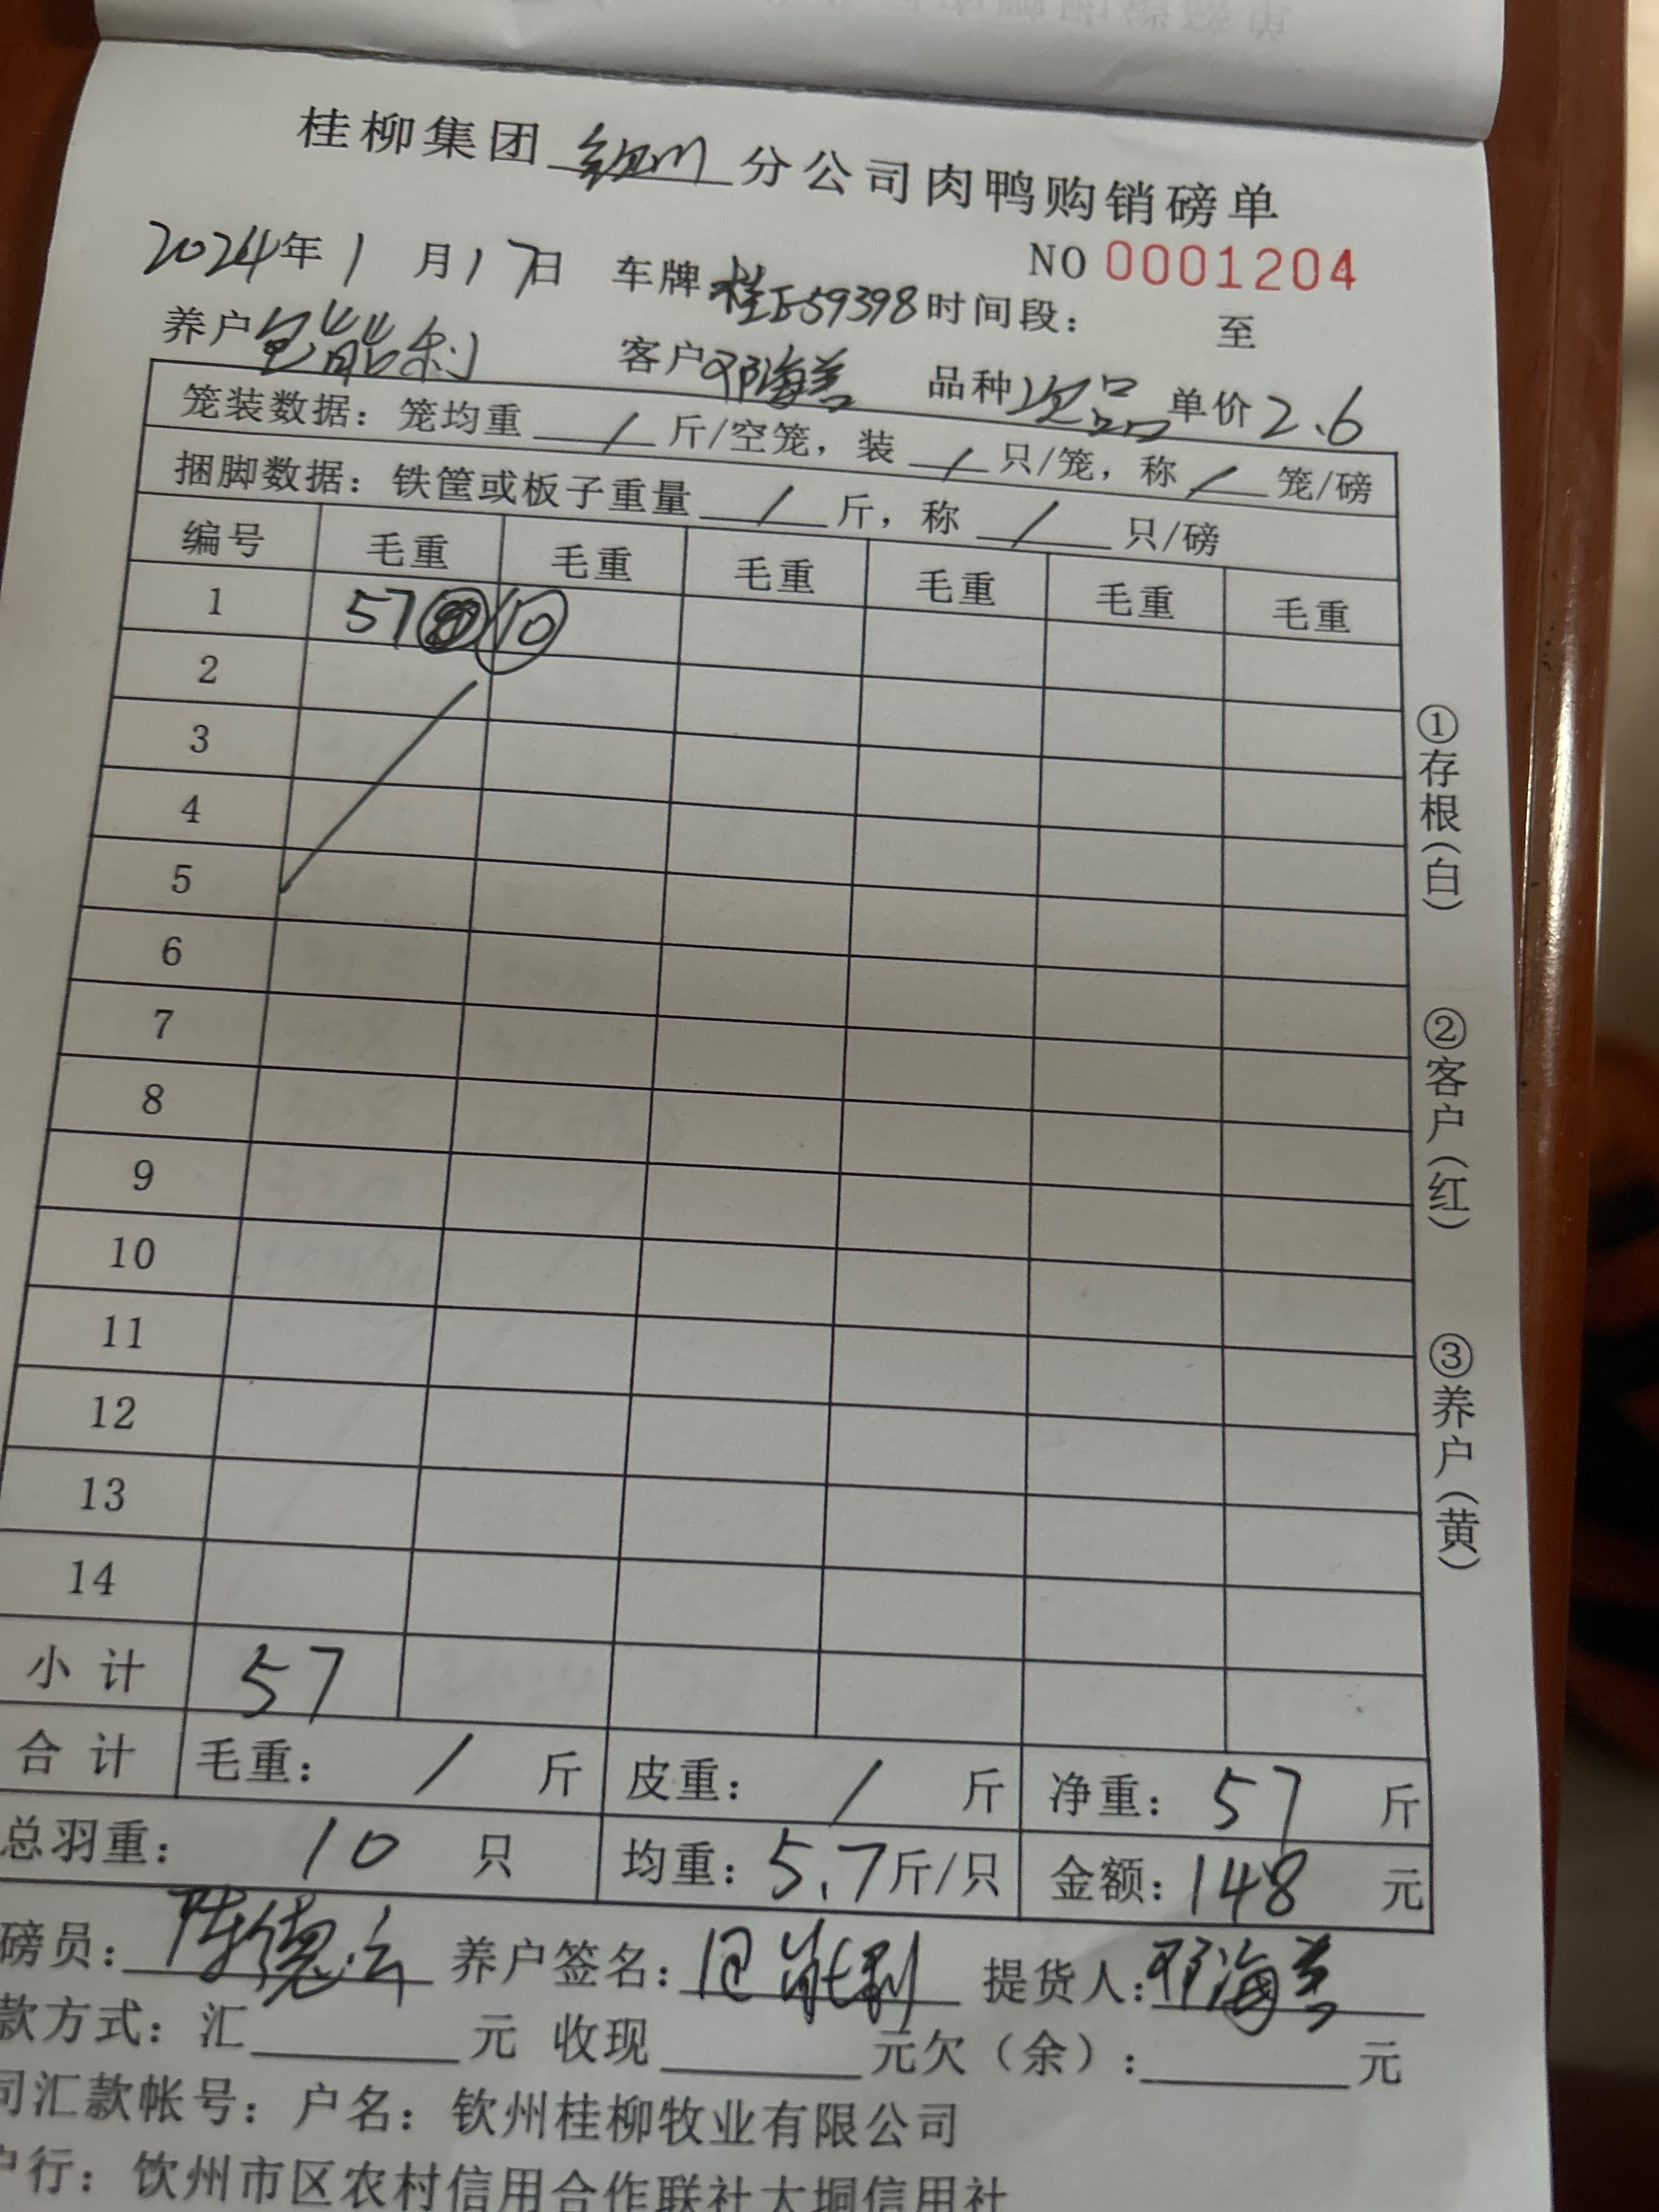 桂柳集团 钦州 分公司肉鸭购销磅单
NO 0001204
2024年1月17日 车牌 桂F59398 时间段: 至
养户 能利 客户 邓海 品种 次品 单价 2.6
笼装数据: 笼均重 / 斤/空笼, 装 / 只/笼, 称 / 笼/磅
捆脚数据: 铁筐或板子重量 / 斤, 称 / 只/磅
编号 毛重 毛重 毛重 毛重 毛重 毛重
1 57 10
2
3
4
5
6
7
8
9
10
11
12
13
14
小计 57
合计 毛重: / 斤 皮重: / 斤 净重: 57 斤
总羽重: 10 只 均重: 5.7斤/只 金额: 148 元
磅员: 陈德云 养户签名: 能利 提货人: 邓海
款方式: 汇 元 收现 元欠(余): 元
司汇款帐号: 户名: 钦州桂柳牧业有限公司
户行: 钦州市区农村信用合作联社大垌信用社
①存根(白)
②客户(红)
③养户(黄)